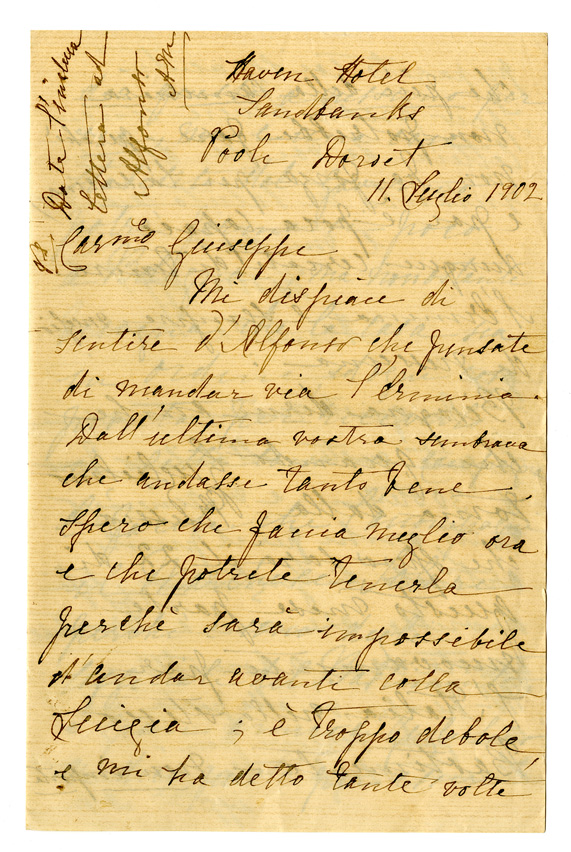 Date l'inclusa
lettera ad
Alfonso
AM
Haven Hotel
Sandbanks
Poole Dorset
11. Luglio 1902
Carmo Giuseppe
Mi dispiace di
sentire d'Alfonso che pensate
di mandar via l'Erminia.
Dall'ultima vostra sembrava
che andasse tanto bene,
spero che faccia meglio ora
e che potrete tenerla
perchè sarà impossibile
d'andar avanti colla
Luigia; è troppo debole,
e mi ha detto tante volte